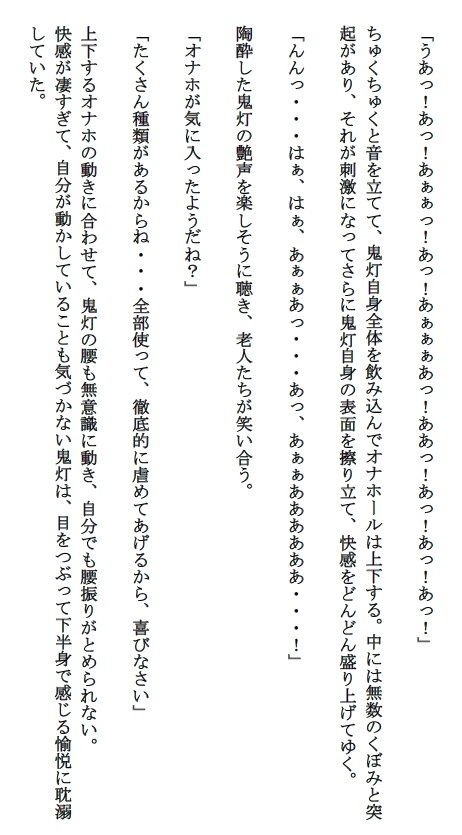 「うあっ！あっ！あぁぁっ！あっ！あぁぁぁあっ！ああっ！あっ！あっ！あっ！」
ちゅくちゅくと音を立てて、鬼灯自身全体を飲み込んでオナホールは上下する。中には無数のくぼみと突
起があり、それが刺激になってさらに鬼灯自身の表面を擦り立て、快感をどんどん盛り上げてゆく。
「んんっ・・・はぁ、はぁ、あぁぁあっ・・・あっ、あぁぁああああああ・・・！」
陶酔した鬼灯の艶声を楽しそうに聴き、老人たちが笑い合う。
「オナホが気に入ったようだね？」
「たくさん種類があるからね・・・全部使って、徹底的に虐めてあげるから、喜びなさい」
上下するオナホの動きに合わせて、鬼灯の腰も無意識に動き、自分でも腰振りがとめられない。
快感が凄すぎて、自分が動かしていることも気づかない鬼灯は、目をつぶって下半身で感じる愉悦に耽溺
していた。